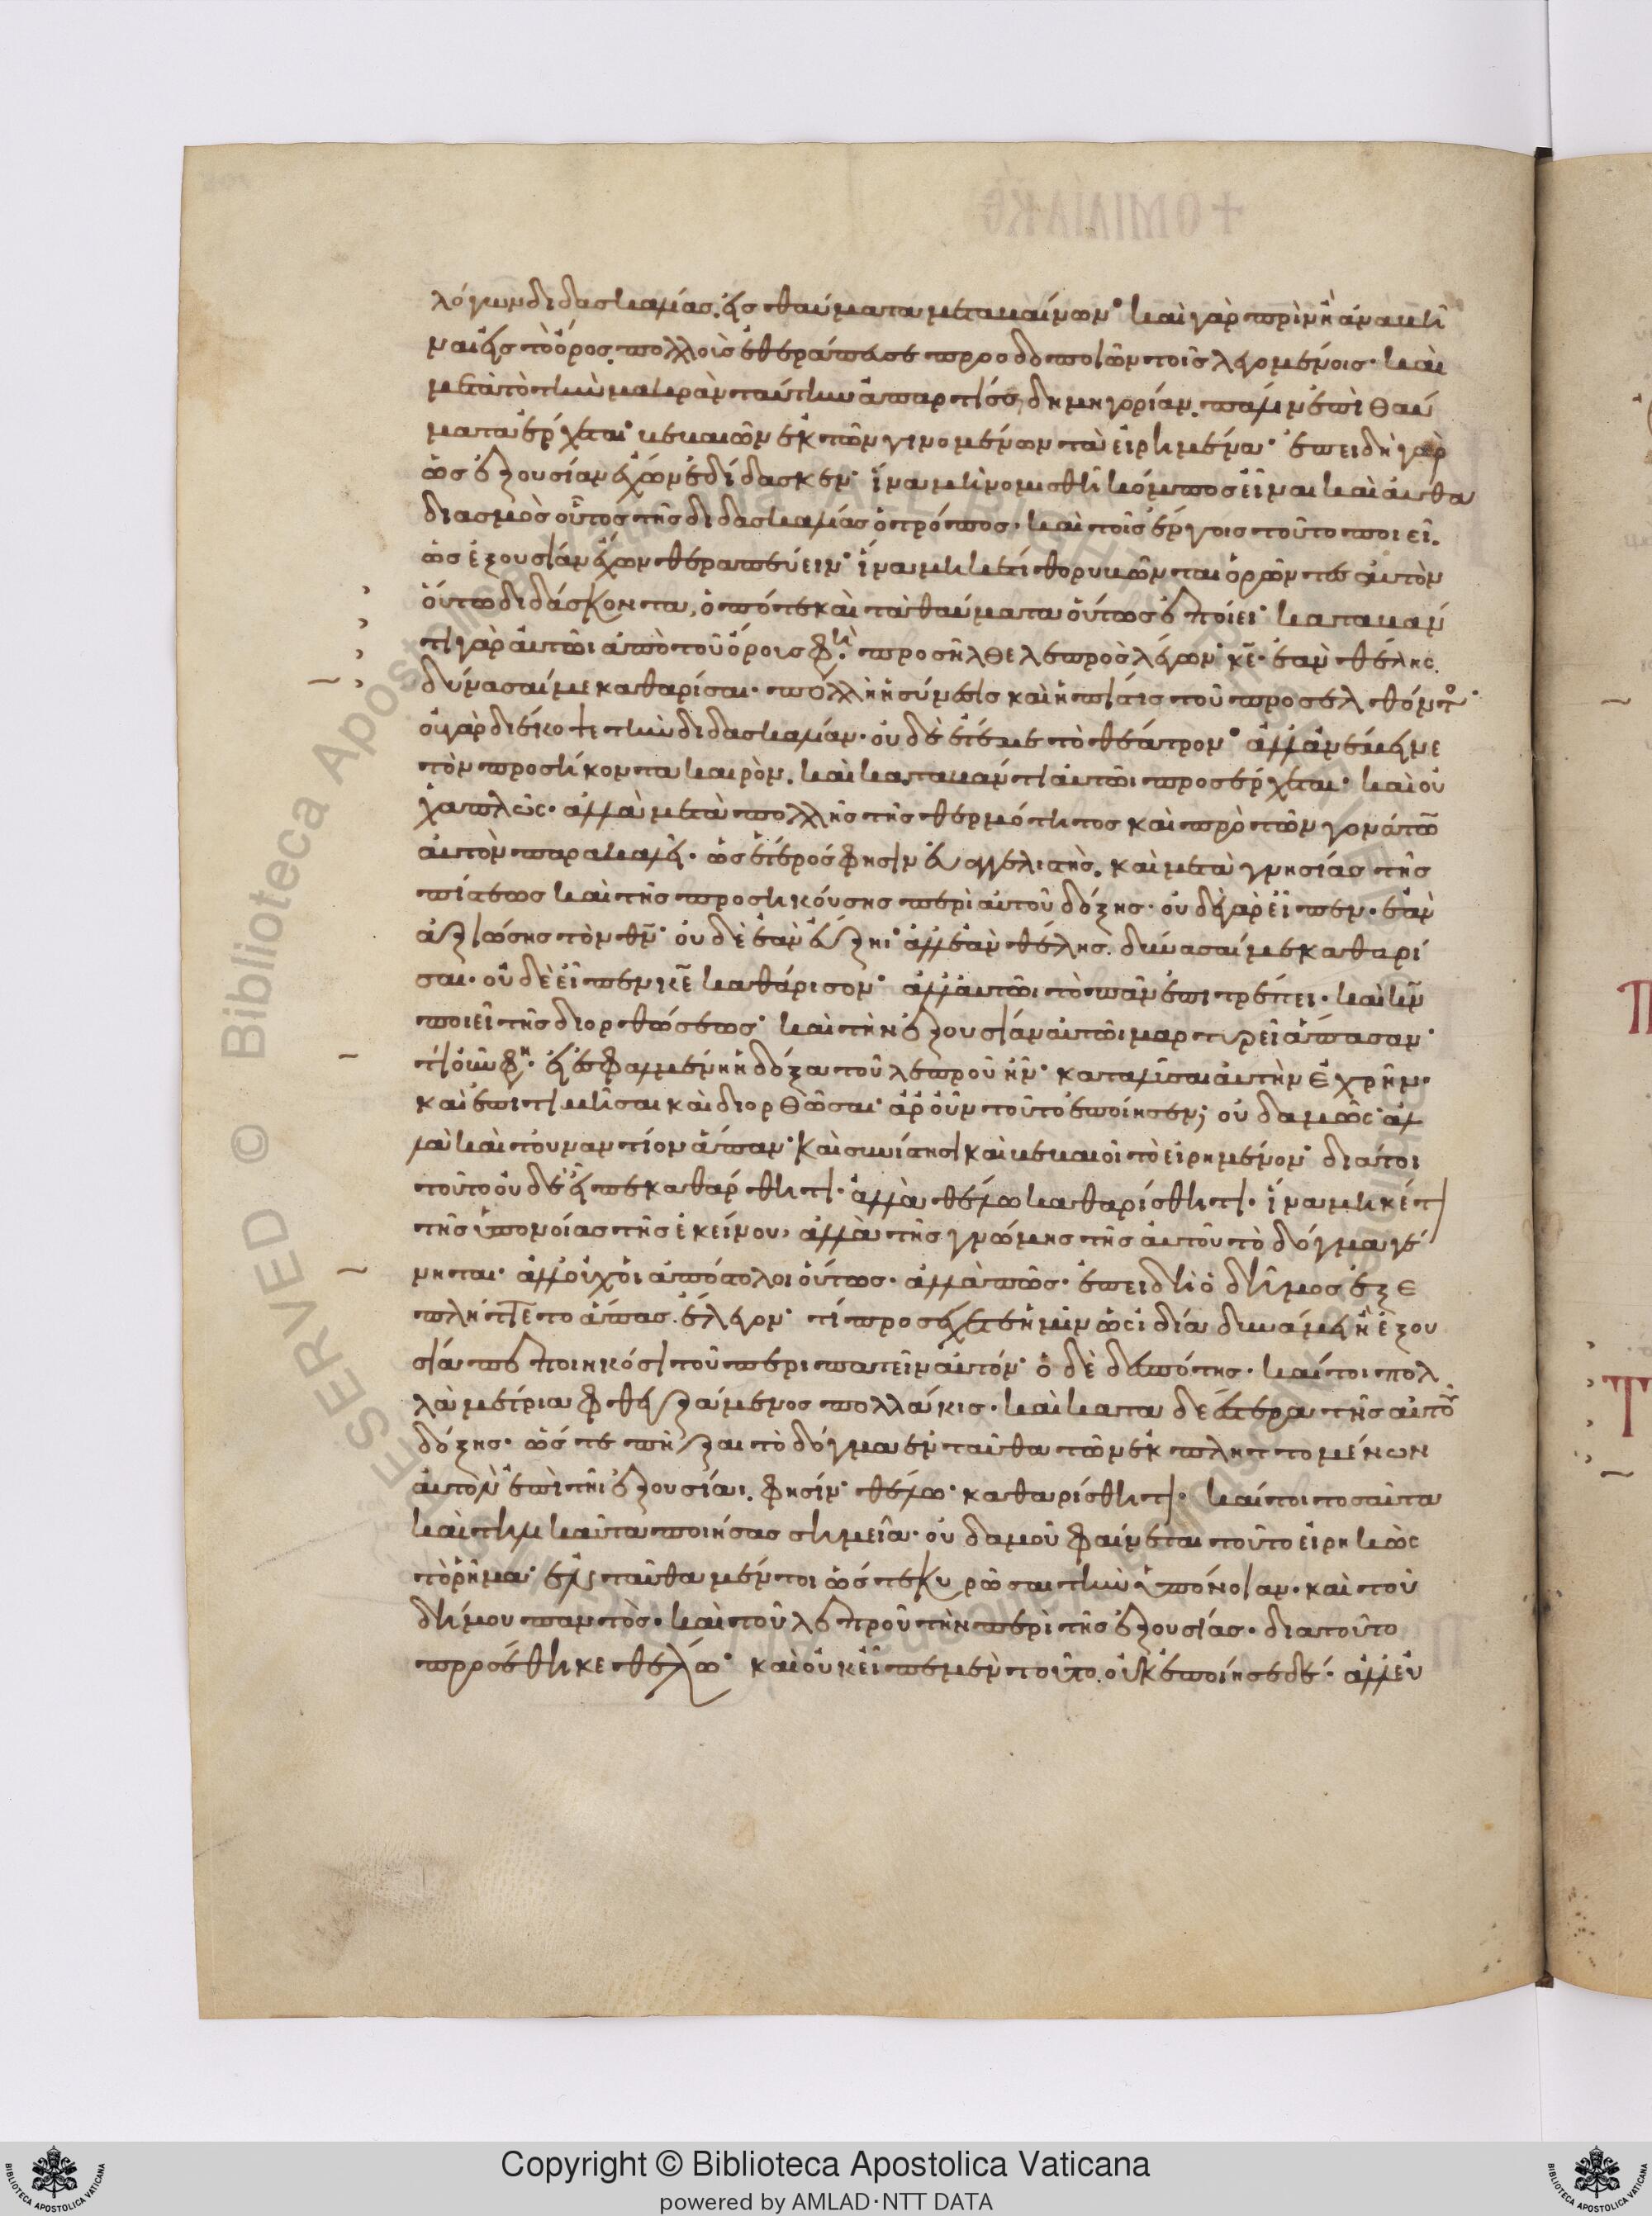 λόγων διδασκαλίας, εἰς θαύματα μεταβαίνων· καὶ γὰρ πρὶν ἢ ἀναβῆ
ναι εἰς τὸ ὄρος, πολλοὺς ἐθεράπευσε προοδοποιῶν τοῖς λεγομένοις· καὶ
μετὰ τὸ τὴν μακρὰν ταύτην ἀπαρτίσαι δημηγορίαν, πάλιν ἐπὶ θαύ
ματα ἔρχεται· βεβαιῶν ἐκ τῶν γινομένων τὰ εἰρημένα· ἐπειδὴ γὰρ
ὡς ἐξουσίαν ἔχων ἐδίδασκεν· ἵνα μὴ νομισθῆ κόμπος εἶναι καὶ αὐθα
διασμὸς οὗτος τῆς διδασκαλίας ὁ τρόπος· καὶ τοῖς ἔργοις τοῦτο ποιεῖ.
ὡς ἐξουσίαν ἔχων θεραπεύειν· ἵνα μηκέτι θορυβῶνται ὁρῶντες αὐτὸν
οὕτω διδάσκοντα, ὁπότε καὶ τὰ θαύματα οὕτως ἐποίει· καταβάν
τι γὰρ αὐτῶι ἀπὸ τοῦ ὄρους φησὶ· προσῆλθε λεπρὸς λέγων· κε· ἐὰν θέλης.
δύνασαί με καθαρίσαι· πολλὴ ἡ σύνεσις καὶ ἡ πίστις τοῦ προσελθόντος·
οὐ γὰρ διέκοψε τὴν διδασκαλίαν· οὐδὲ διέτεμε τὸ θέατρον· ἀλλ' ἀνέμεινε
τὸν προσήκοντα καιρὸν. καὶ καταβάντι αὐτῶι προσέρχεται· καὶ οὐ
χ' ἁπλῶς· ἀλλὰ μετὰ πολλῆς τῆς θερμότητος καὶ πρὸ τῶν γονάτων
αὐτὸν παρακαλεῖ· ὡς ἕτερός φησιν εὐαγγελιστὴς. καὶ μετὰ γνησίας τῆς
πίστεως καὶ τῆς προσηκούσης περὶ αὐτοῦ δόξης· οὐδὲ γὰρ εἶπεν· ἐὰν
ἀξιώσης τὸν θν· οὐδὲ ἐὰν εὔξηι· ἀλλ' ἐὰν θέλης. δύνασαί με καθαρί
σαι· οὐδὲ εἶπεν κε καθάρισον· ἀλλ' αὐτῶι τὸ πᾶν ἐπιτρέπει· καὶ κν
ποιεῖ τῆς διορθώσεως· καὶ τὴν ἐξουσίαν αὐτῶι μαρτυρεῖ ἅπασαν·
τί οὖν φη· εἰ ἐσφαλμένη ἡ δόξα τοῦ λεπροῦ ἦν· καταλῦσαι αὐτὴν ἐχρῆν·
καὶ ἐπιτιμῆσαι καὶ διορθῶσαι· ἆρ' οὖν τοῦτο ἐποίησεν; οὐδαμῶς· ἀλ
λὰ καὶ τοὐναντίον ἅπαν· καὶ συνίστησι καὶ βεβαιοῖ τὸ εἰρημένον· διά τοι
τοῦτο οὐδὲ εἶπε καθάρθητι· ἀλλὰ θέλω καθαρίσθητι· ἵνα μηκέτι
τῆς ὑπονοίας τῆς ἐκείνου, ἀλλὰ τῆς γνώμης τῆς αὐτοῦ τὸ δόγμα γέ
νηται· ἀλλ' οὐχ' οἱ ἀπόστολοι οὕτως· ἀλλὰ πῶς· ἐπειδὴ ὁ δῆμος ἐξε
πλήττετο ἅπας. ἔλεγον· τί προσέχετε ἡμῖν ὡς ἰδία δυνάμει ἢ ἐξου
σία πεποιηκόσι τοῦ περιπατεῖν αὐτόν· ὁ δὲ δεσπότης· καίτοι πολ
λὰ μέτρια φθεγξάμενος πολλάκις· καὶ καταδεέστερα τῆς αὐτοῦ
δόξης· ὥστε πῆξαι τὸ δόγμα ἐνταῦθα τῶν ἐκπληττομένων
αὐτὸν ἐπὶ τῆι ἐξουσίαι. φησίν· θέλω· καθαρίσθητι· καίτοι τοσαῦτα
καὶ τηλικαῦτα ποιήσας σημεῖα· οὐδαμοῦ φαίνεται τοῦτο εἰρηκὼς
τὸ ῥῆμα· ἐνταῦθα μέντοι ὥστε κυρῶσαι τὴν ὑπόνοιαν· καὶ τοῦ
δήμου παντὸς· καὶ τοῦ λεπροῦ τὴν περὶ τῆς ἐξουσίας· διατοῦτο
προσέθηκε θέλω· καὶ οὐκ εἶπε μὲν τοῦτο. οὐκ ἐποίησε δέ· ἀλλ' εὐ